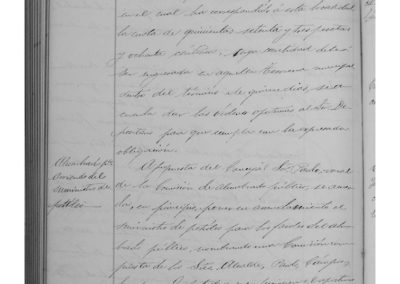 en el cual ha correspondido á esta localidad
la cuota de quinientas setenta y tres pesetas
y ochenta centimos, cuya cantidad deberá
ser ingresada en aquella Tesoreria municipal
dentro del término de quince dias, se a-
cuerda dar las ordenes oportunas al Sr. De-
positario para que cumpla con la expresada
obligacion.
Alumbrado pco
Arriendo del
suministro de
petróleo
A propuesta del Concejal Sr. Pardo, vocal
de la Comision de alumbrado público, se acuer-
da, en principio, poner en arrendamiento el
suministro de petróleo para los faroles del alum-
brado público, nombrando una Comision com-
puesta de los Sres. Alcalde, Pardo, Campos,